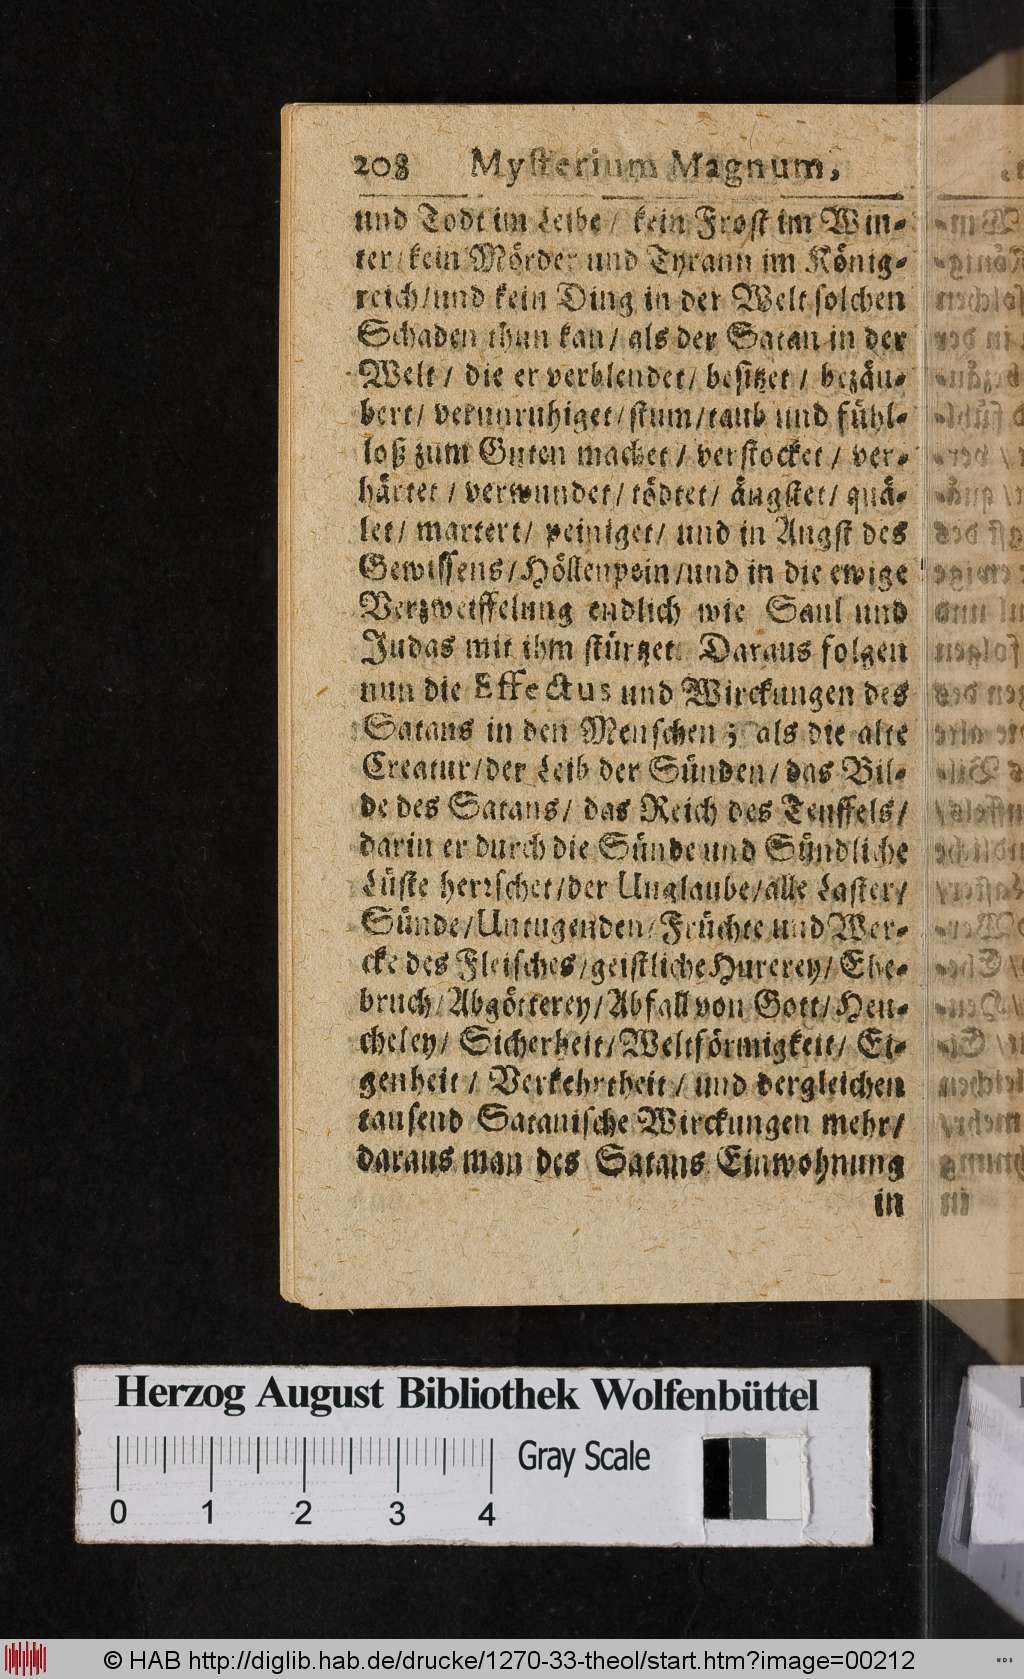 208 Mysterium Magnum,
und Todt im Leibe / kein Frost im Win-
ter / kein Mörder und Tyrann im König-
reich / und kein Ding in der Welt solchen
Schaden thun kan / als der Satan in der
Welt / die er verblendet / besitzet / bezäu-
bert / verunruhiget / stum / taub und fühl-
loß zum Guten machet / verstocket / ver-
härtet / verwundet / tödtet / ängstet / quä-
let / martert / peiniget / und in Angst des
Gewissens / Höllenpein / und in die ewige
Verzweiffelung endlich wie Saul und
Judas mit ihm stürtzet. Daraus folgen
nun die Effectus und Wirckungen des
Satans in den Menschen; als die alte
Creatur / der Leib der Sünden / das Bil-
de des Satans / das Reich des Teuffels /
darin er durch die Sünde und Sündliche
Lüste herrschet / der Unglaube / alle Laster /
Sünde / Untugenden / Früchte und Wer-
cke des Fleisches / geistliche Hurerey / Ehe-
bruch / Abgötterey / Abfall von Gott / Heu-
cheley / Sicherheit / Weltförmigkeit / Ei-
genheit / Verkehrtheit / und dergleichen
tausend Satanische Wirckungen mehr /
daraus man des Satans Einwohnung
in
Herzog August Bibliothek Wolfenbüttel
Gray Scale
0 1 2 3 4
© HAB http://diglib.hab.de/drucke/1270-33-theol/start.htm?image=00212